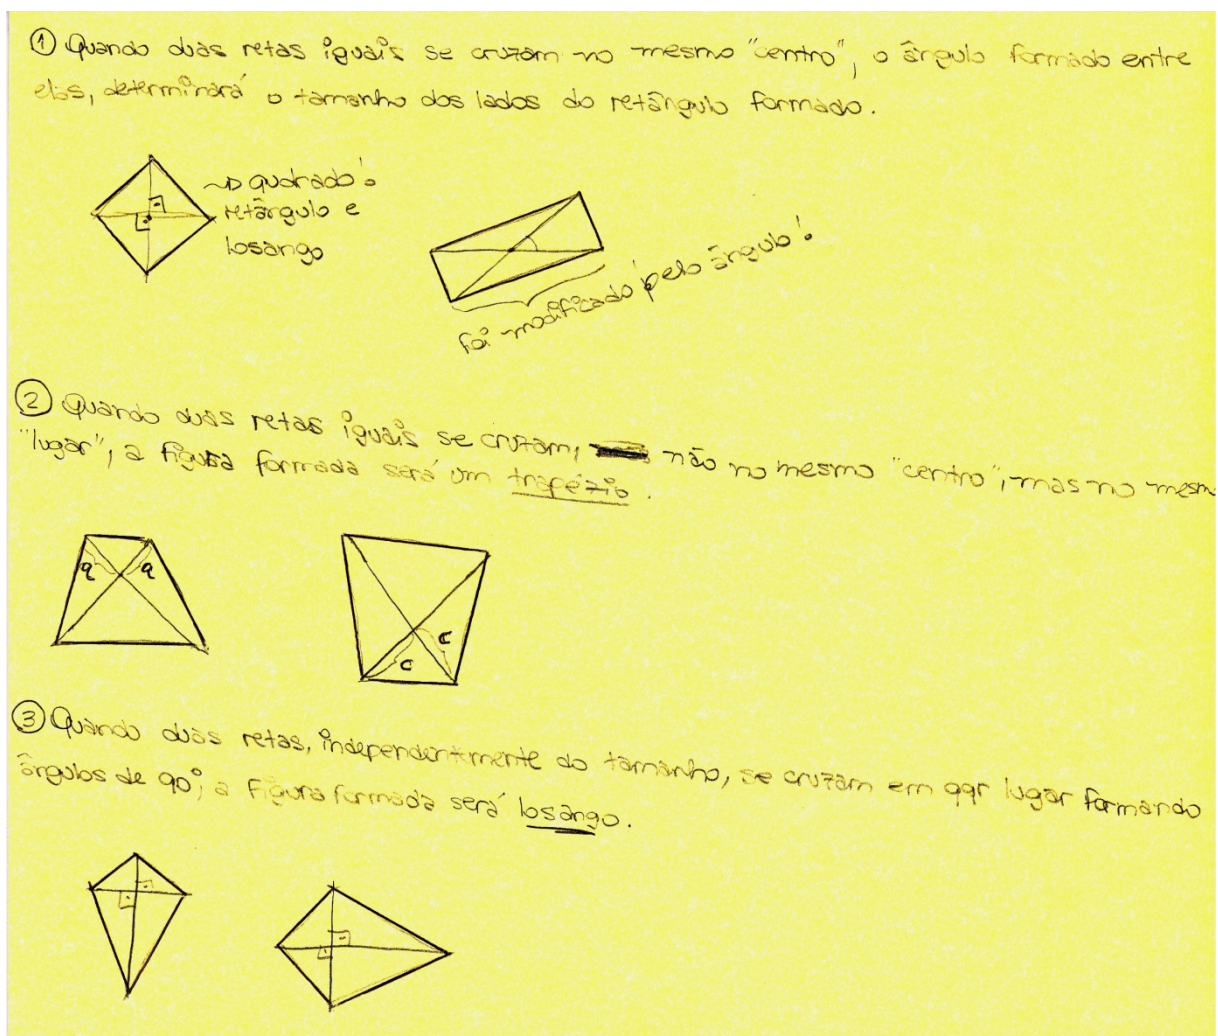 ① Quando duas retas iguais se cruzam no mesmo "centro", o ângulo formado entre
elas, determinará o tamanho dos lados do retângulo formado.
quadrado!
retângulo e
losango
foi modificado pelo ângulo!
② Quando duas retas iguais se cruzam, não no mesmo "centro", mas no mesm
"lugar", a figura formada será um trapézio.
a a
c
c
③ Quando duas retas, independentemente do tamanho, se cruzam em qqr lugar formando
ângulos de 90°, a figura formada será losango.